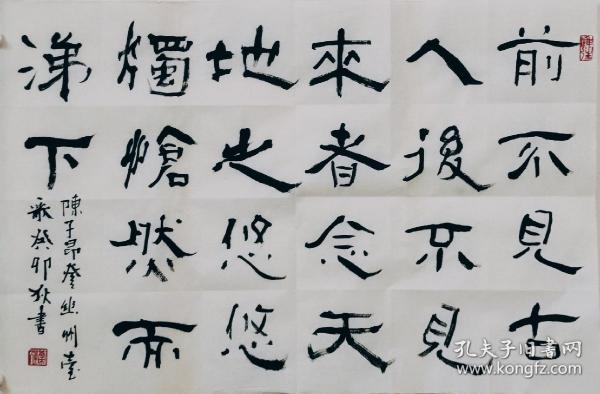 前不見古
人後不見
來者念天
地之悠悠
獨愴然而
涕下
陳子昂登幽州臺
歌癸卯秋書
孔夫子旧书网
www.kongfz.com